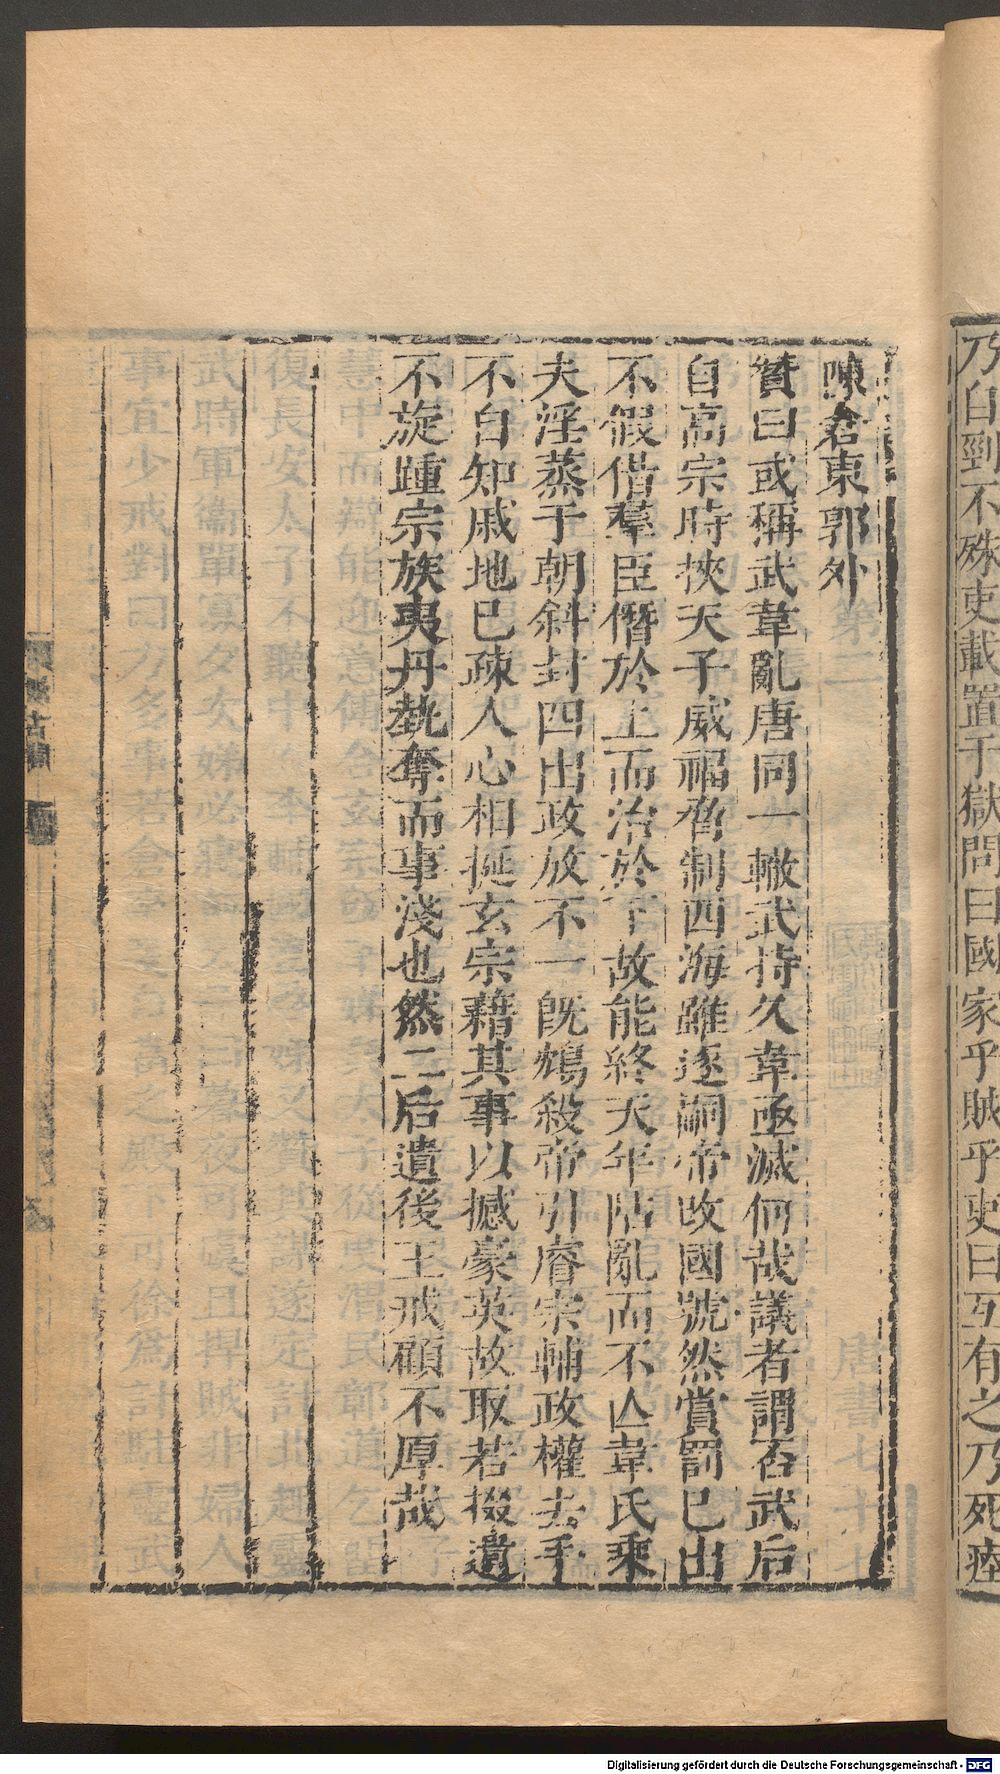 乃自剄不殊吏載置于獄問曰國家乎賊乎吏曰互有之乃死瘞
陳倉東郭外
贊曰或稱武韋亂唐同一轍武持久韋亟滅何哉議者謂否武后
自高宗時挾天子威福脅制四海雖逐嗣帝改國號然賞罰己出
不假借羣臣僭於上而治於下故能終天年阽亂而不亾韋氏乘
夫淫蒸于朝斜封四出政放不一旣鴆殺帝引睿宗輔政權去手
不自知戚地已疎人心相挻玄宗藉其事以撼豪英故取若掇遺
不旋踵宗族夷丹埶奪而事淺也然二后遺後王戒顧不厚哉
Digitalisierung gefördert durch die Deutsche Forschungsgemeinschaft - DFG